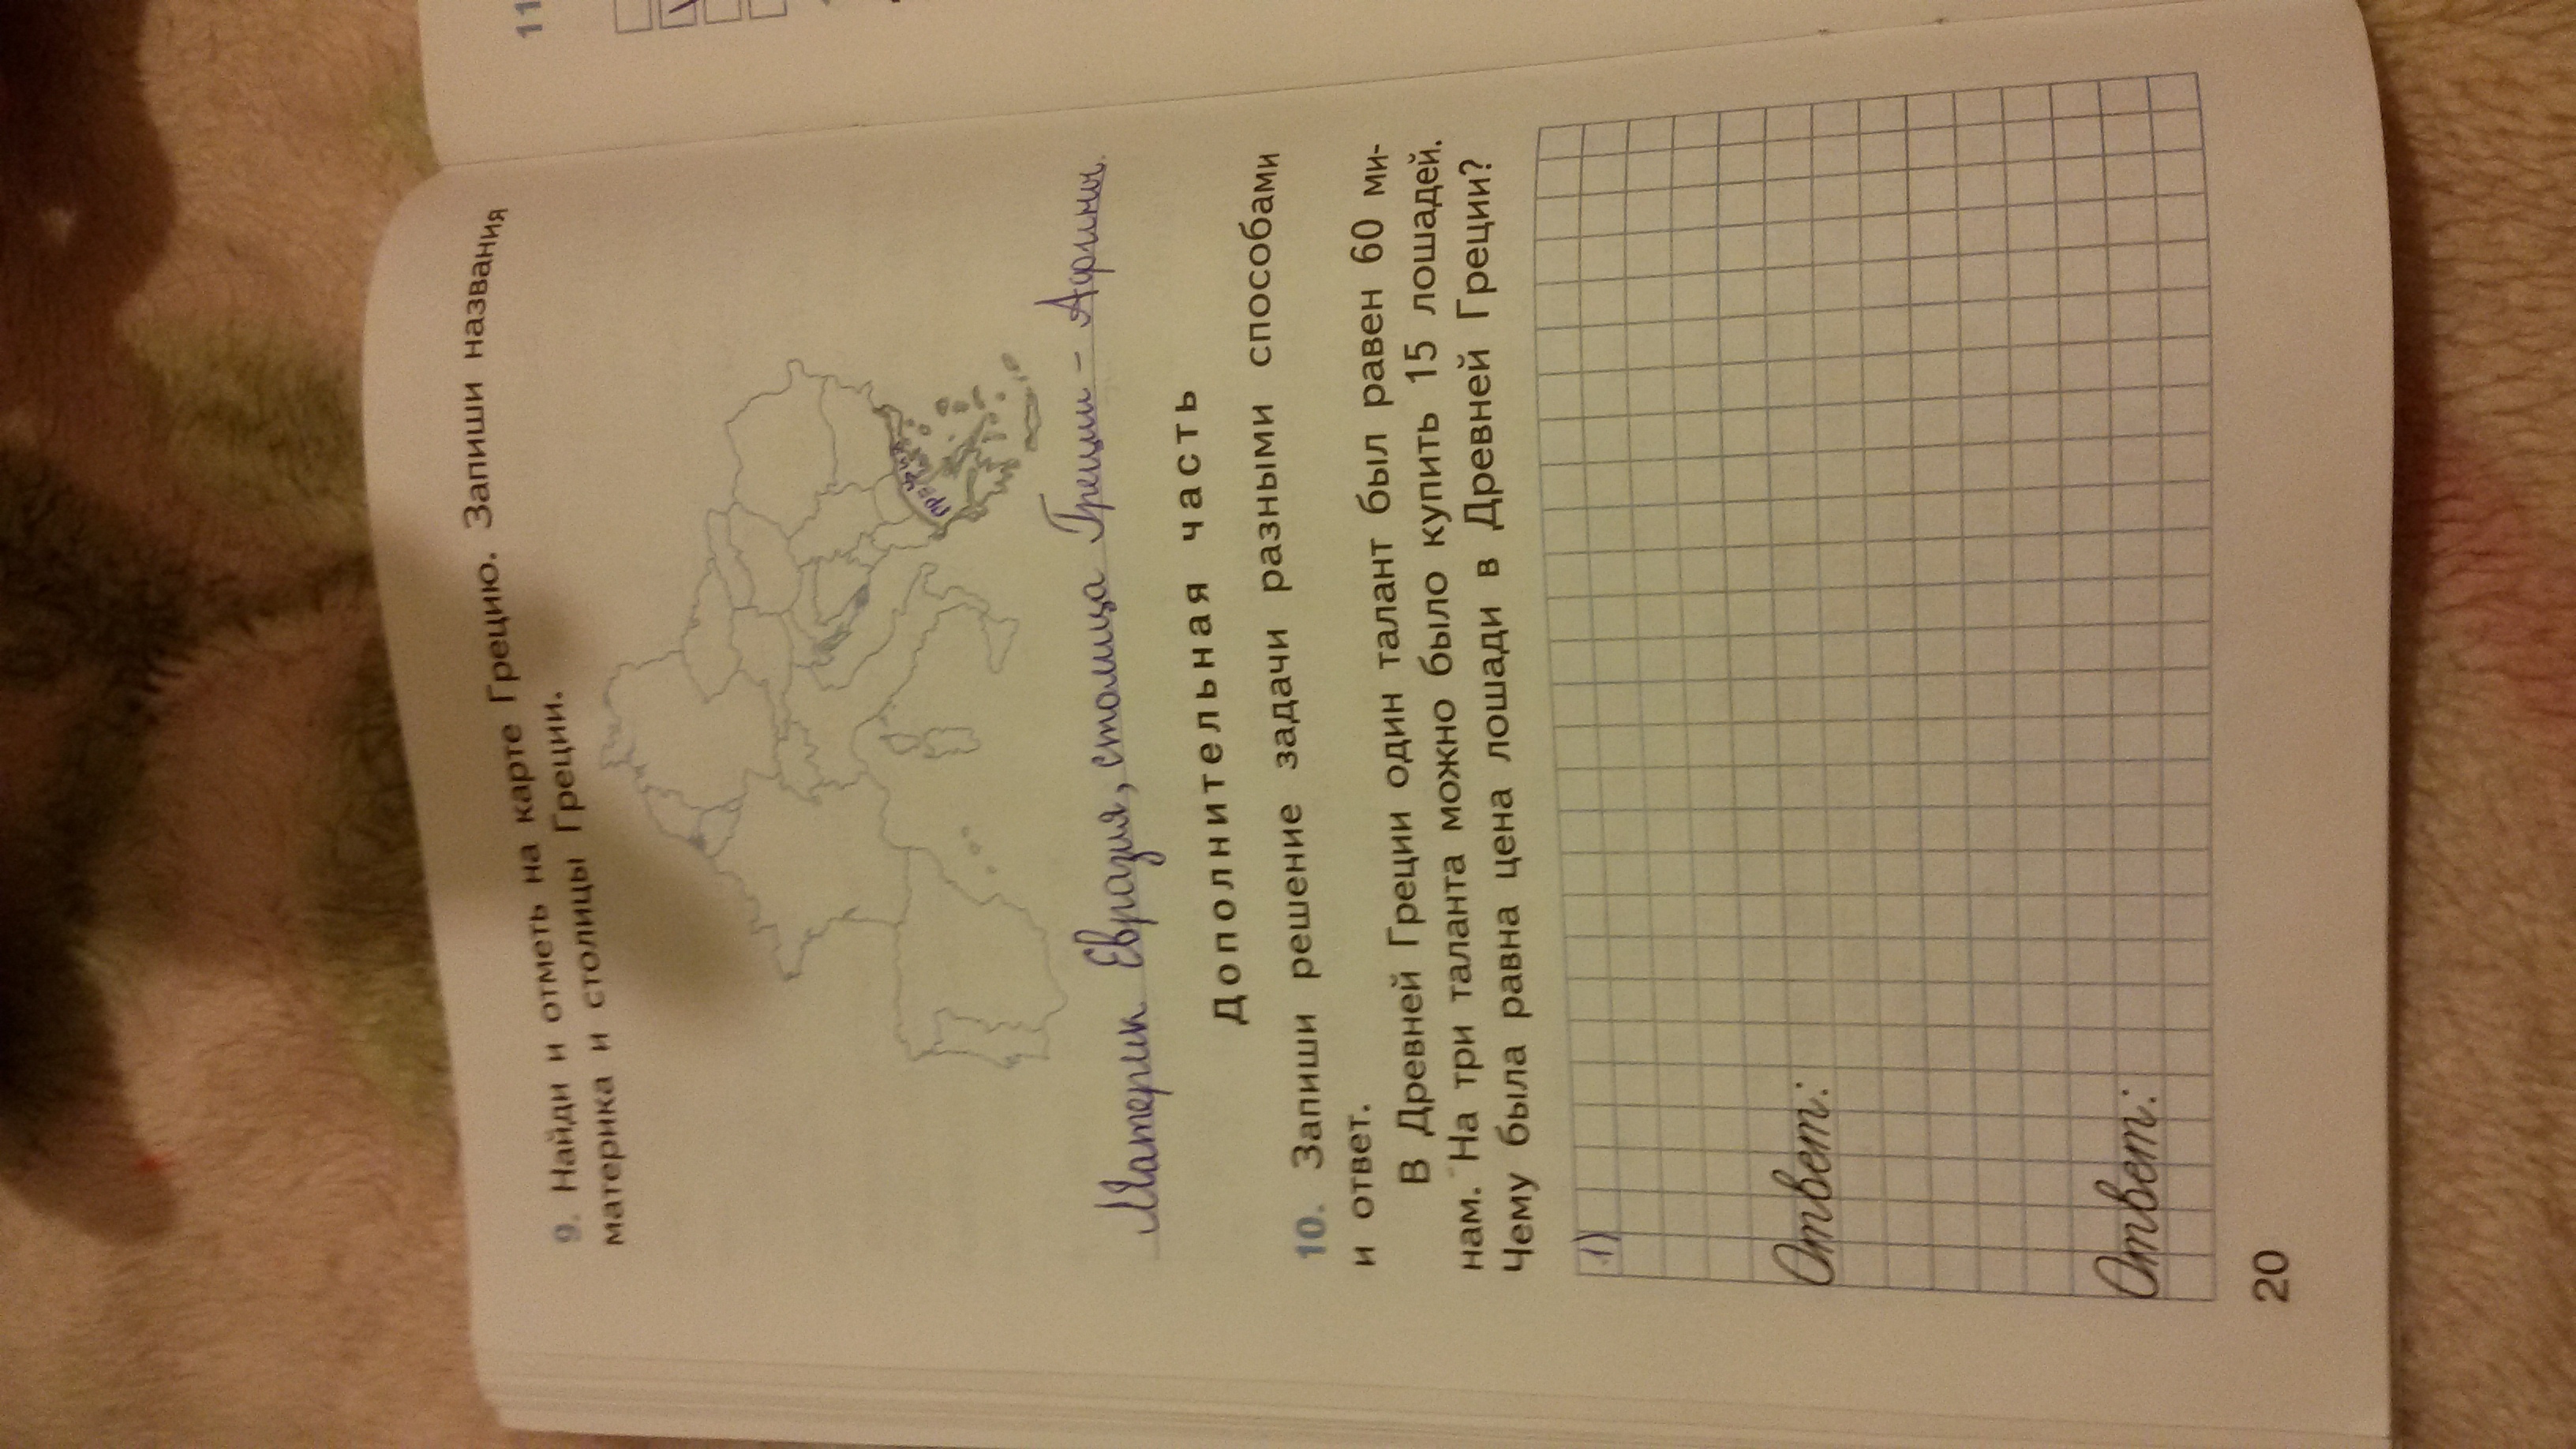 9. Найди и отметь на карте Грецию. Запиши названия
материка и столицы Греции.
Греция
Материк Евразия, столица Греции - Афины.
Дополнительная часть
10. Запиши решение задачи разными способами
и ответ.
В Древней Греции один талант был равен 60 ми-
нам. На три таланта можно было купить 15 лошадей.
Чему была равна цена лошади в Древней Греции?
1)
Ответ:
Ответ:
20
11